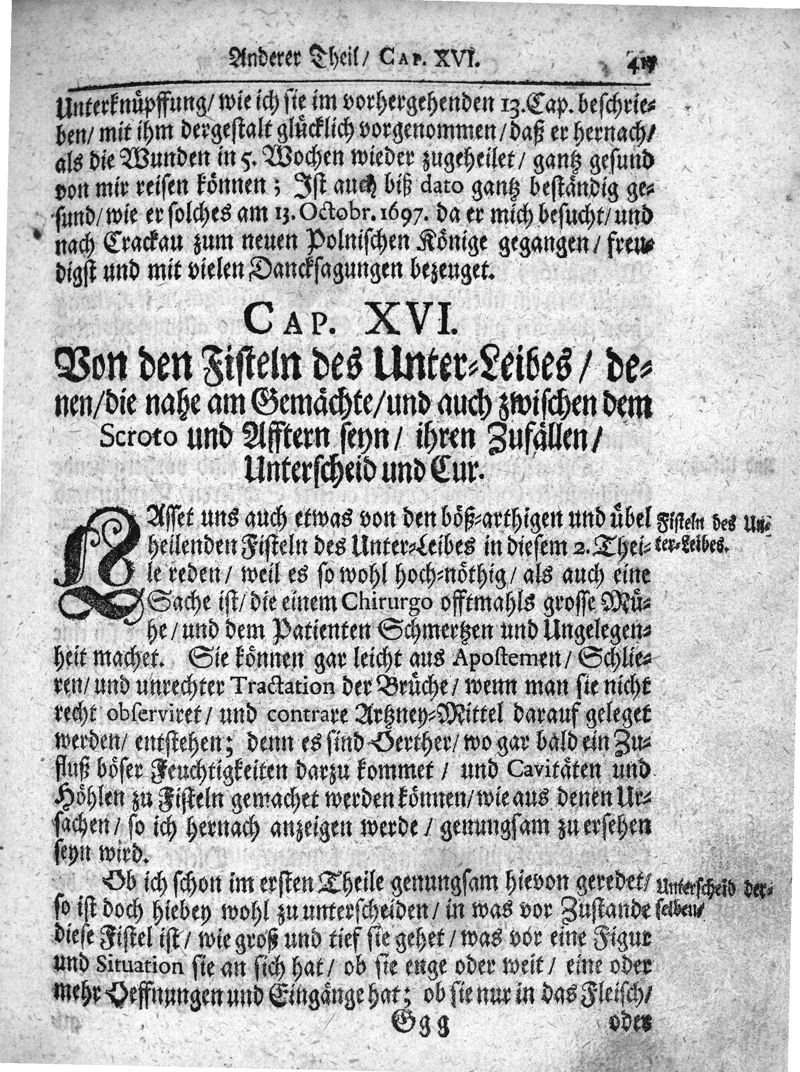 Anderer Theil/ CAP. XVI. 417
Unterknüpffung/ wie ich sie im vorhergehenden 13. Cap. beschrie-
ben/ mit ihm dergestalt glücklich vorgenommen/ daß er hernach/
als die Wunden in 5. Wochen wieder zugeheilet/ gantz gesund
von mir reisen können; Ist auch biß dato gantz beständig ge-
sund/ wie er solches am 13. Octobr. 1697. da er mich besucht/ und
nach Crackau zum neuen Polnischen Könige gegangen/ freu-
digst und mit vielen Dancksagungen bezeuget.
CAP. XVI.
Von den Fisteln des Unter-Leibes/ de-
nen/ die nahe am Gemächte/ und auch zwischen dem
Scroto und Afftern seyn/ ihren Zufällen/
Unterscheid und Cur.
LAsset uns auch etwas von den böß-arthigen und übel
heilenden Fisteln des Unter-Leibes in diesem 2. Thei-
le reden/ weil es so wohl hoch-nöthig/ als auch eine
Sache ist/ die einem Chirurgo offtmahls grosse Mü-
he/ und dem Patienten Schmertzen und Ungelegen-
heit machet. Sie können gar leicht aus Apostemen/ Schlie-
ren/ und unrechter Tractation der Brüche/ wenn man sie nicht
recht observiret/ und contrare Artzney-Mittel darauf geleget
werden/ entstehen; denn es sind Oerther/ wo gar bald ein Zu-
fluß böser Feuchtigkeiten darzu kommet/ und Cavitäten und
Höhlen zu Fisteln gemachet werden können/ wie aus denen Ur-
sachen/ so ich hernach anzeigen werde/ genungsam zu ersehen
seyn wird.
Fisteln des Un-
ter-Leibes.
Ob ich schon im ersten Theile genungsam hievon geredet/
so ist doch hiebey wohl zu unterscheiden/ in was vor Zustande
diese Fistel ist/ wie groß und tief sie gehet/ was vor eine Figur
und Situation sie an sich hat/ ob sie enge oder weit/ eine oder
mehr Oeffnungen und Eingänge hat; ob sie nur in das Fleisch/
Unterscheid der-
selben/
Ggg oder